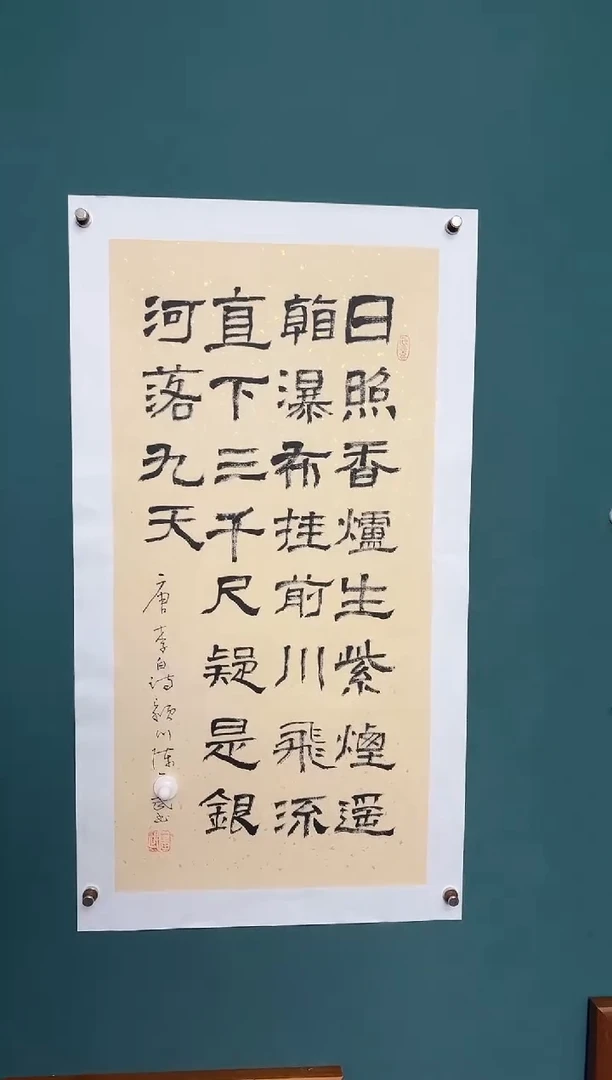 日照香爐生紫煙遥
看瀑布挂前川飛流
直下三千尺疑是銀
河落九天
唐李白诗颖川陈武书